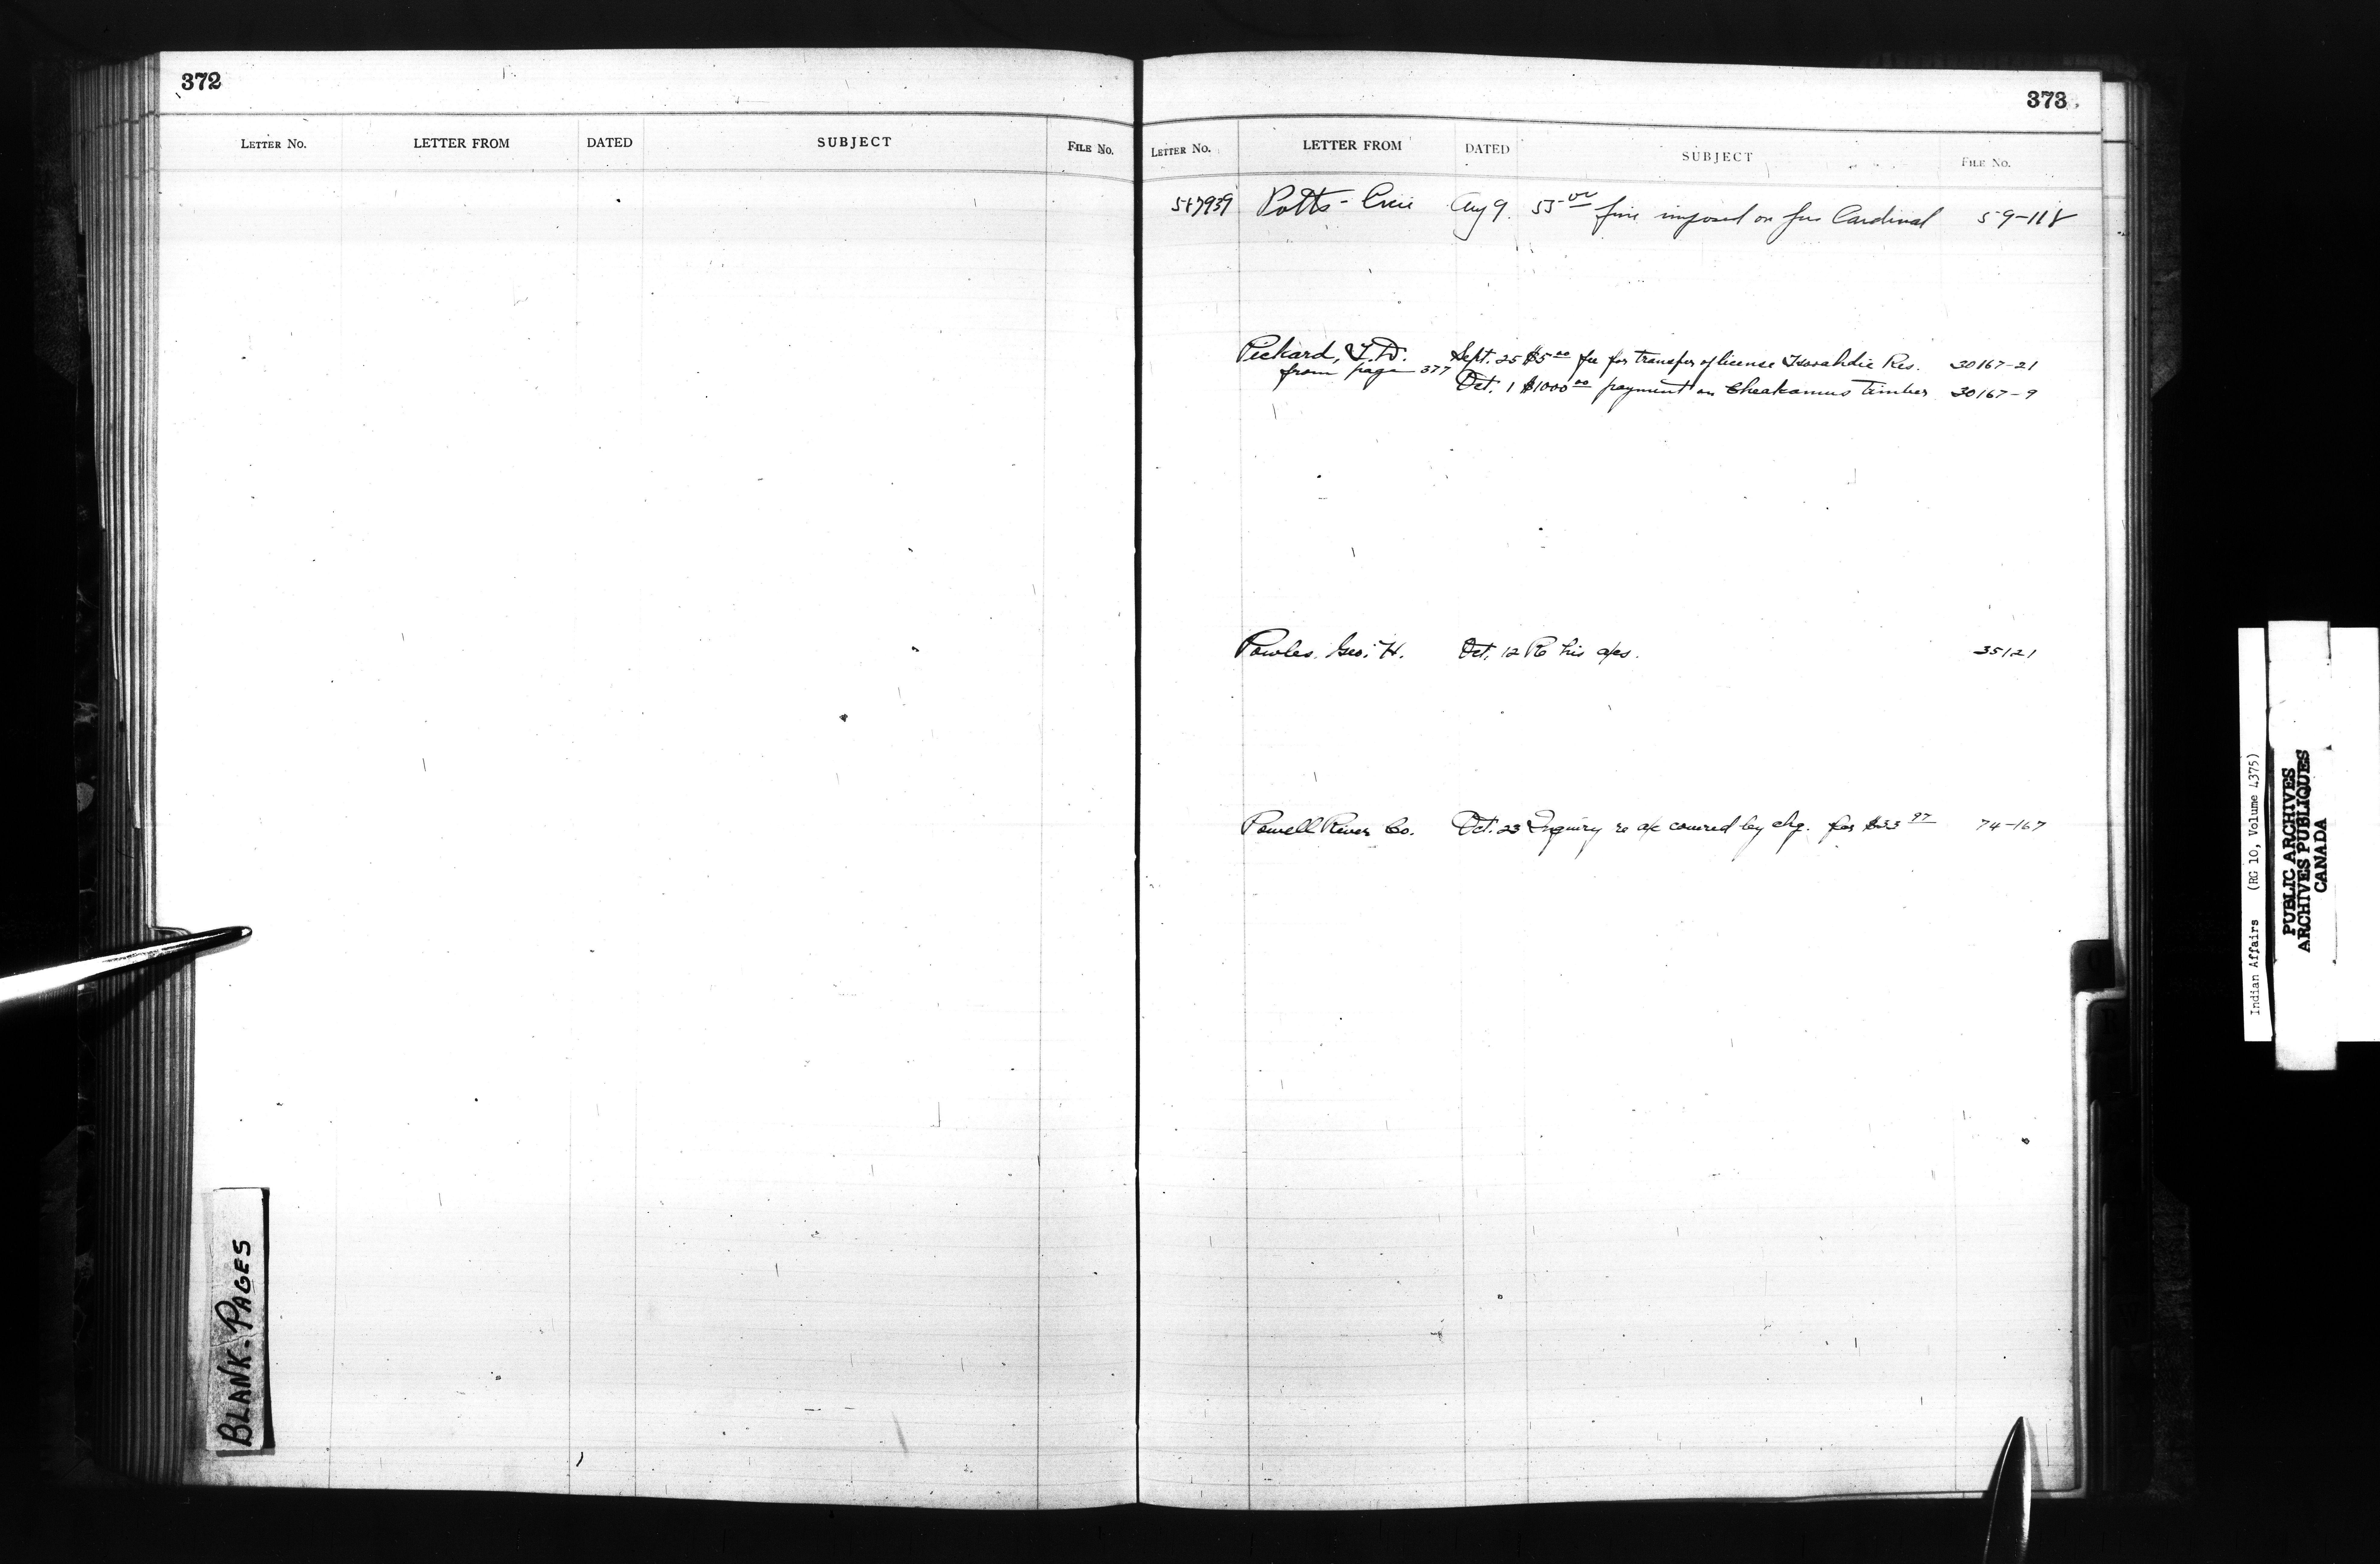 372
LETTER NO. LETTER FROM DATED SUBJECT FILE NO.
BLANK-PAGES
373
LETTER NO. LETTER FROM DATED SUBJECT FILE NO.
547939 Potts - Aug 9. 55.00 fine imposed on Cardinal 59-118
Pickard, T.D. Sept. 25 $5.00 fee for transfer of license Res. 30167-21
from page 377 Oct. 1 $1000.00 payment on Cheakamus timber 30167-9
Powles, Geo. H. Oct. 12 Re his a/cs. 35121
Powell River Co. Oct. 23 Inquiry re a/c covered by chq. for $33.97 74-167
Indian Affairs (RG 10, Volume 4375)
PUBLIC ARCHIVES
ARCHIVES PUBLIQUES
CANADA